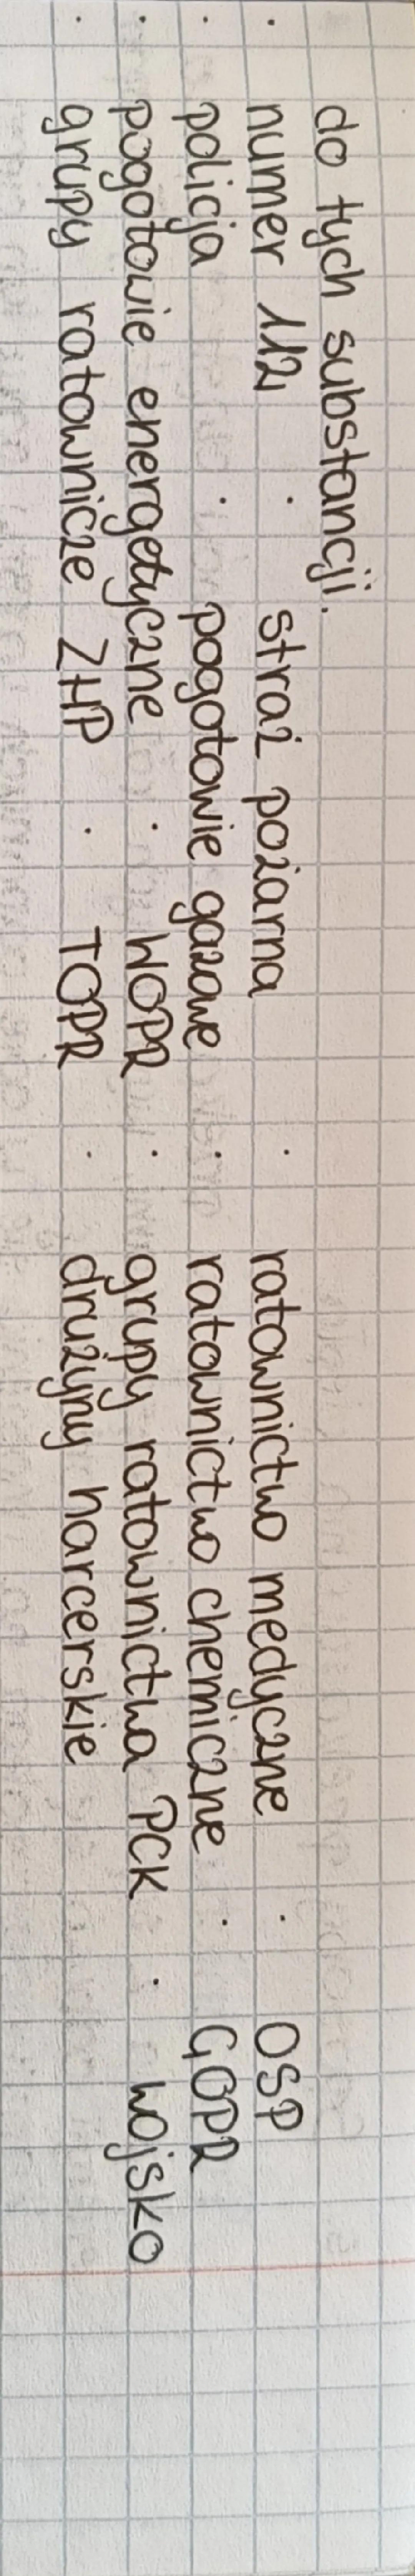 do tych substancji.
· numer 112 · straż pożarna · ratownictwo medyczne · OSP
· policja · pogotowie gazowe · ratownictwo chemiczne · GOPR
· pogotowie energetyczne · WOPR · grupy ratownictwa PCK · wojsko
· grupy ratownicze ZHP · TOPR · drużyny harcerskie